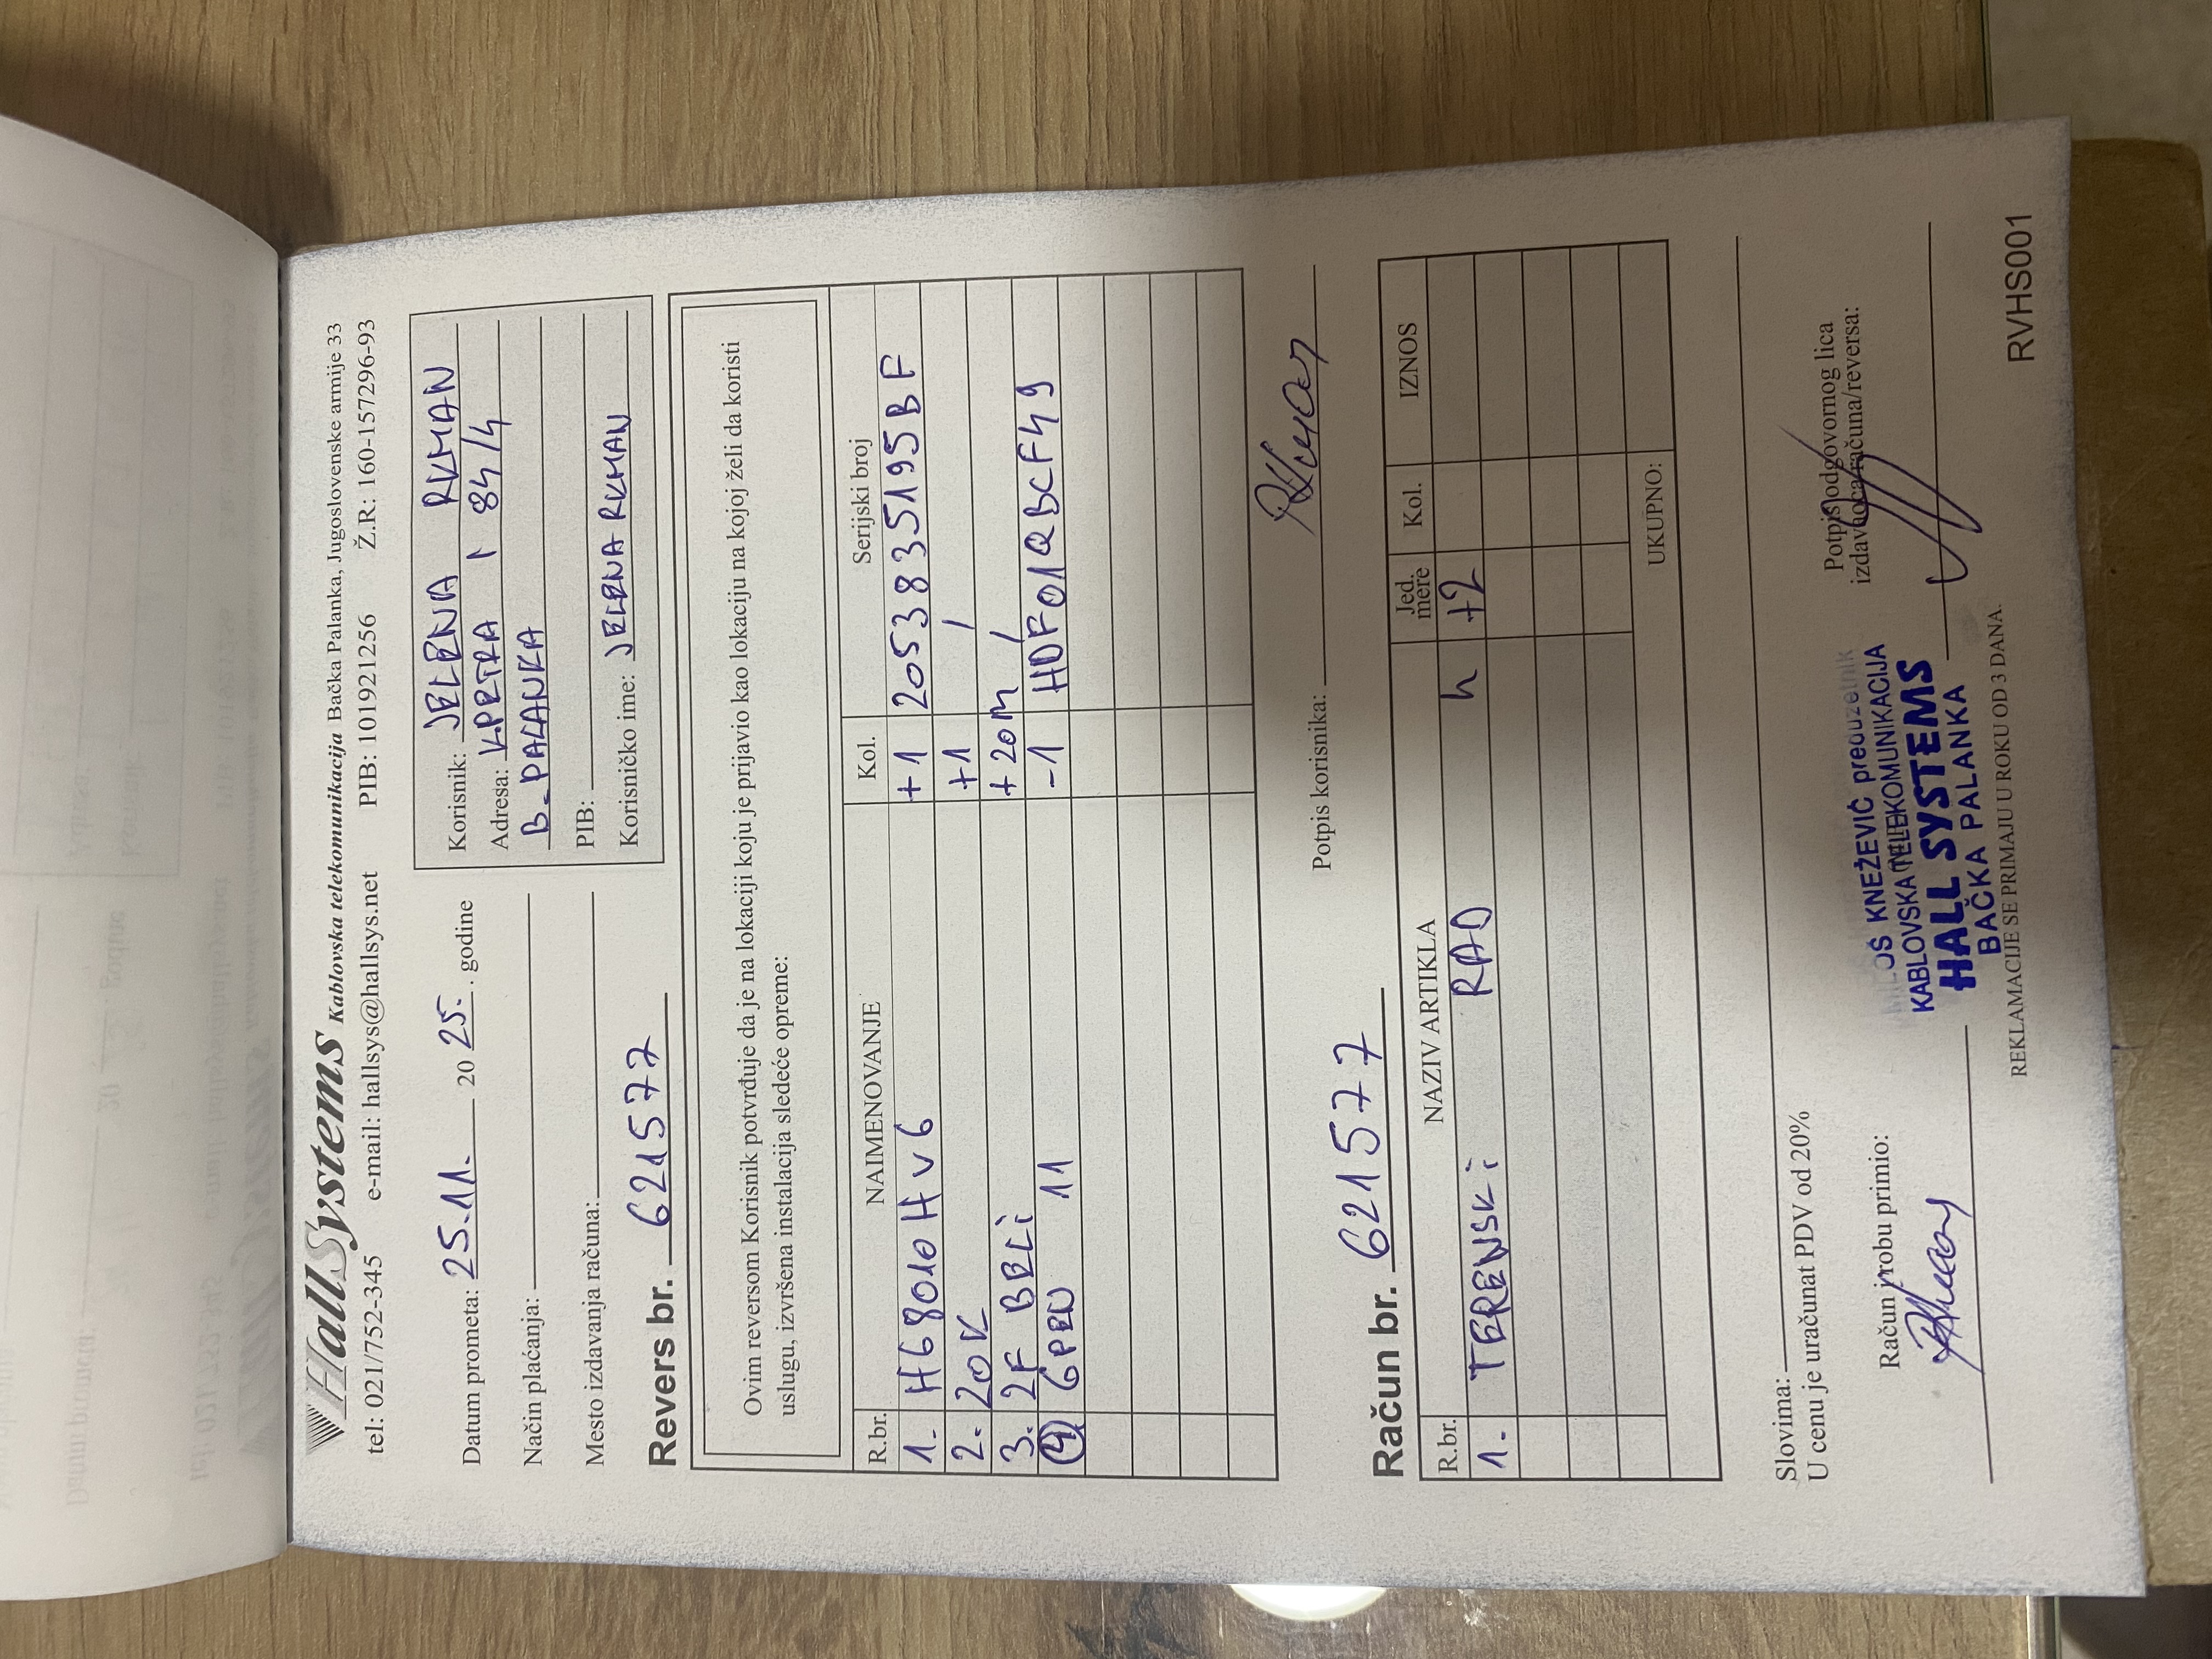 HallSystems Kablovska telekomunikacija Bačka Palanka, Jugoslovenske armije 33
tel: 021/752-345 e-mail: hallsys@hallsys.net PIB: 101921256 Ž.R.: 160-157296-93
Datum prometa: 25.11. 20 25. . godine
Način plaćanja:
Mesto izdavanja računa:
Korisnik: JELENA RKMAN
Adresa: K.PETRA I 84/4
B. PALANKA
PIB:
Korisničko ime: JELENARKMAN
Revers br. 621577
Ovim reversom Korisnik potvrđuje da je na lokaciji koju je prijavio kao lokaciju na kojoj želi da koristi
uslugu, izvršena instalacija sledeće opreme:
R.br. NAIMENOVANJE Kol. Serijski broj
1. H68010Hv6 +1 2053835195BF
2. 20K +1 /
3. 2F BELI +20m /
4 GPEN 11 -1 HDF01QBCF49
Potpis korisnika:
Račun br. 621577
R.br. NAZIV ARTIKLA Jed. mere Kol. IZNOS
1. TERENSKI RAD h +2
UKUPNO:
Slovima:
U cenu je uračunat PDV od 20%
Račun i robu primio:
Potpis odgovornog lica
izdavaoca računa/reversa:
MILOŠ KNEŽEVIĆ preduzetnik
KABLOVSKA TELEKOMUNIKACIJA
HALL SYSTEMS
BAČKA PALANKA
REKLAMACIJE SE PRIMAJU U ROKU OD 3 DANA.
RVHS001